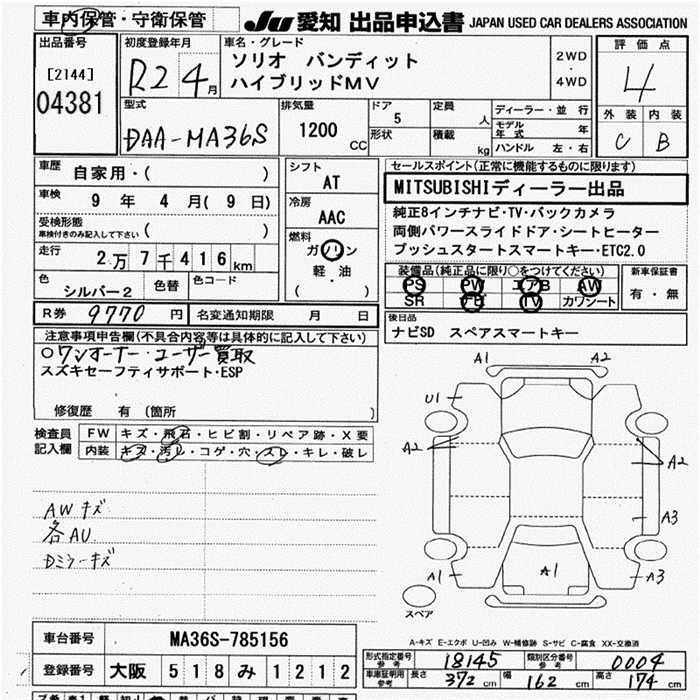 車内保管・守衛保管
JU 愛知 出品申込書 JAPAN USED CAR DEALERS ASSOCIATION
出品番号
[2144]
04381
初度登録年月
R2 4月
車名・グレード
ソリオ バンディット
ハイブリッドMV
2WD
・
4WD
評価点
4
外装 内装
C B
型式
DAA-MA36S
排気量
1200 CC
ドア 5
形状
定員 人
積載 kg
ディーラー・並行
モデル年式 年
ハンドル 左・右
車歴 自家用・( )
車検 9年 4月(9日)
受検形態
車検付きのみ記入して下さい ( )
走行 2万7千416km
色 シルバー2
色替
色コード
シフト
AT
冷房
AAC
燃料
ガソリン
軽・油
( )
セールスポイント(正常に機能するものに限ります)
MITSUBISHIディーラー出品
純正8インチナビ・TV・バックカメラ
両側パワースライドドア・シートヒーター
プッシュスタートスマートキー・ETC2.0
装備品(純正品に限り○をつけてください)
PS PW エアB AW
SR ナビ TV カワシート
新車保証書
有・無
R券 9770円
名変通知期限 月 日
後日品
ナビSD スペアスマートキー
注意事項申告欄(不具合内容等は具体的に記入して下さい)
○ワンオーナー・ユーザー買取
スズキセーフティサポート・ESP
修復歴 有(箇所 )
検査員記入欄
FW キズ・飛石・ヒビ割・リペア跡・X要
内装 キズ・汚レ・コゲ・穴・スレ・キレ・破レ
AWキズ
各AU
Dミラーキズ
A1 A2
U1
A2 A2
A3
A1 A1 A3
スペア
A-キズ E-エクボ U-凹み W-補修跡 S-サビ C-腐食 XX-交換済
車台番号 MA36S-785156
登録番号 大阪 518 み 1212
形式指定番号 参考 18145
類別区分番号 参考 0004
車庫証明用 参考 長さ 372cm 幅 162cm 高さ 174cm